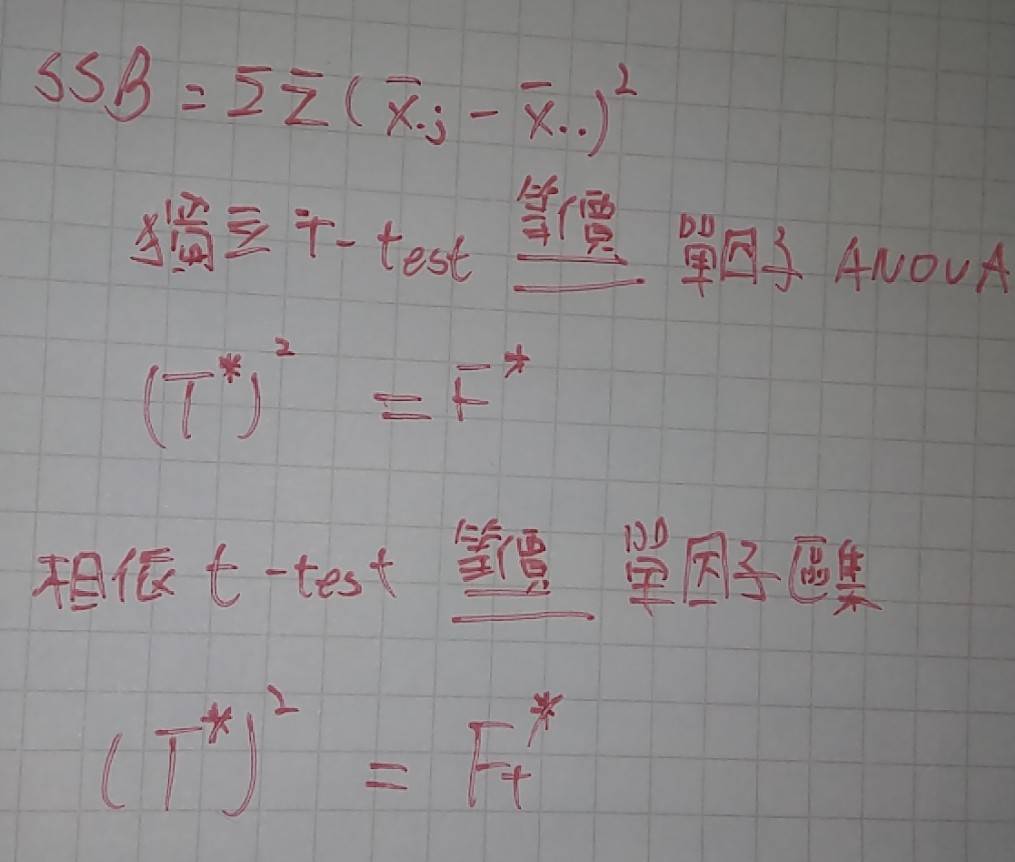 SSB = ΣΣ(x̄.j - x̄..)²
獨立 T-test 等價 單因子 ANOVA
(T*)² = F*
相依 t-test 等價 單因子區集
(T*)² = F_t*